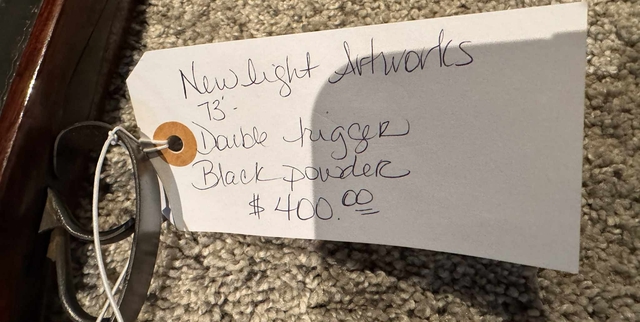 Newlight Artworks
73'-
Double trigger
Black powder
$400.00